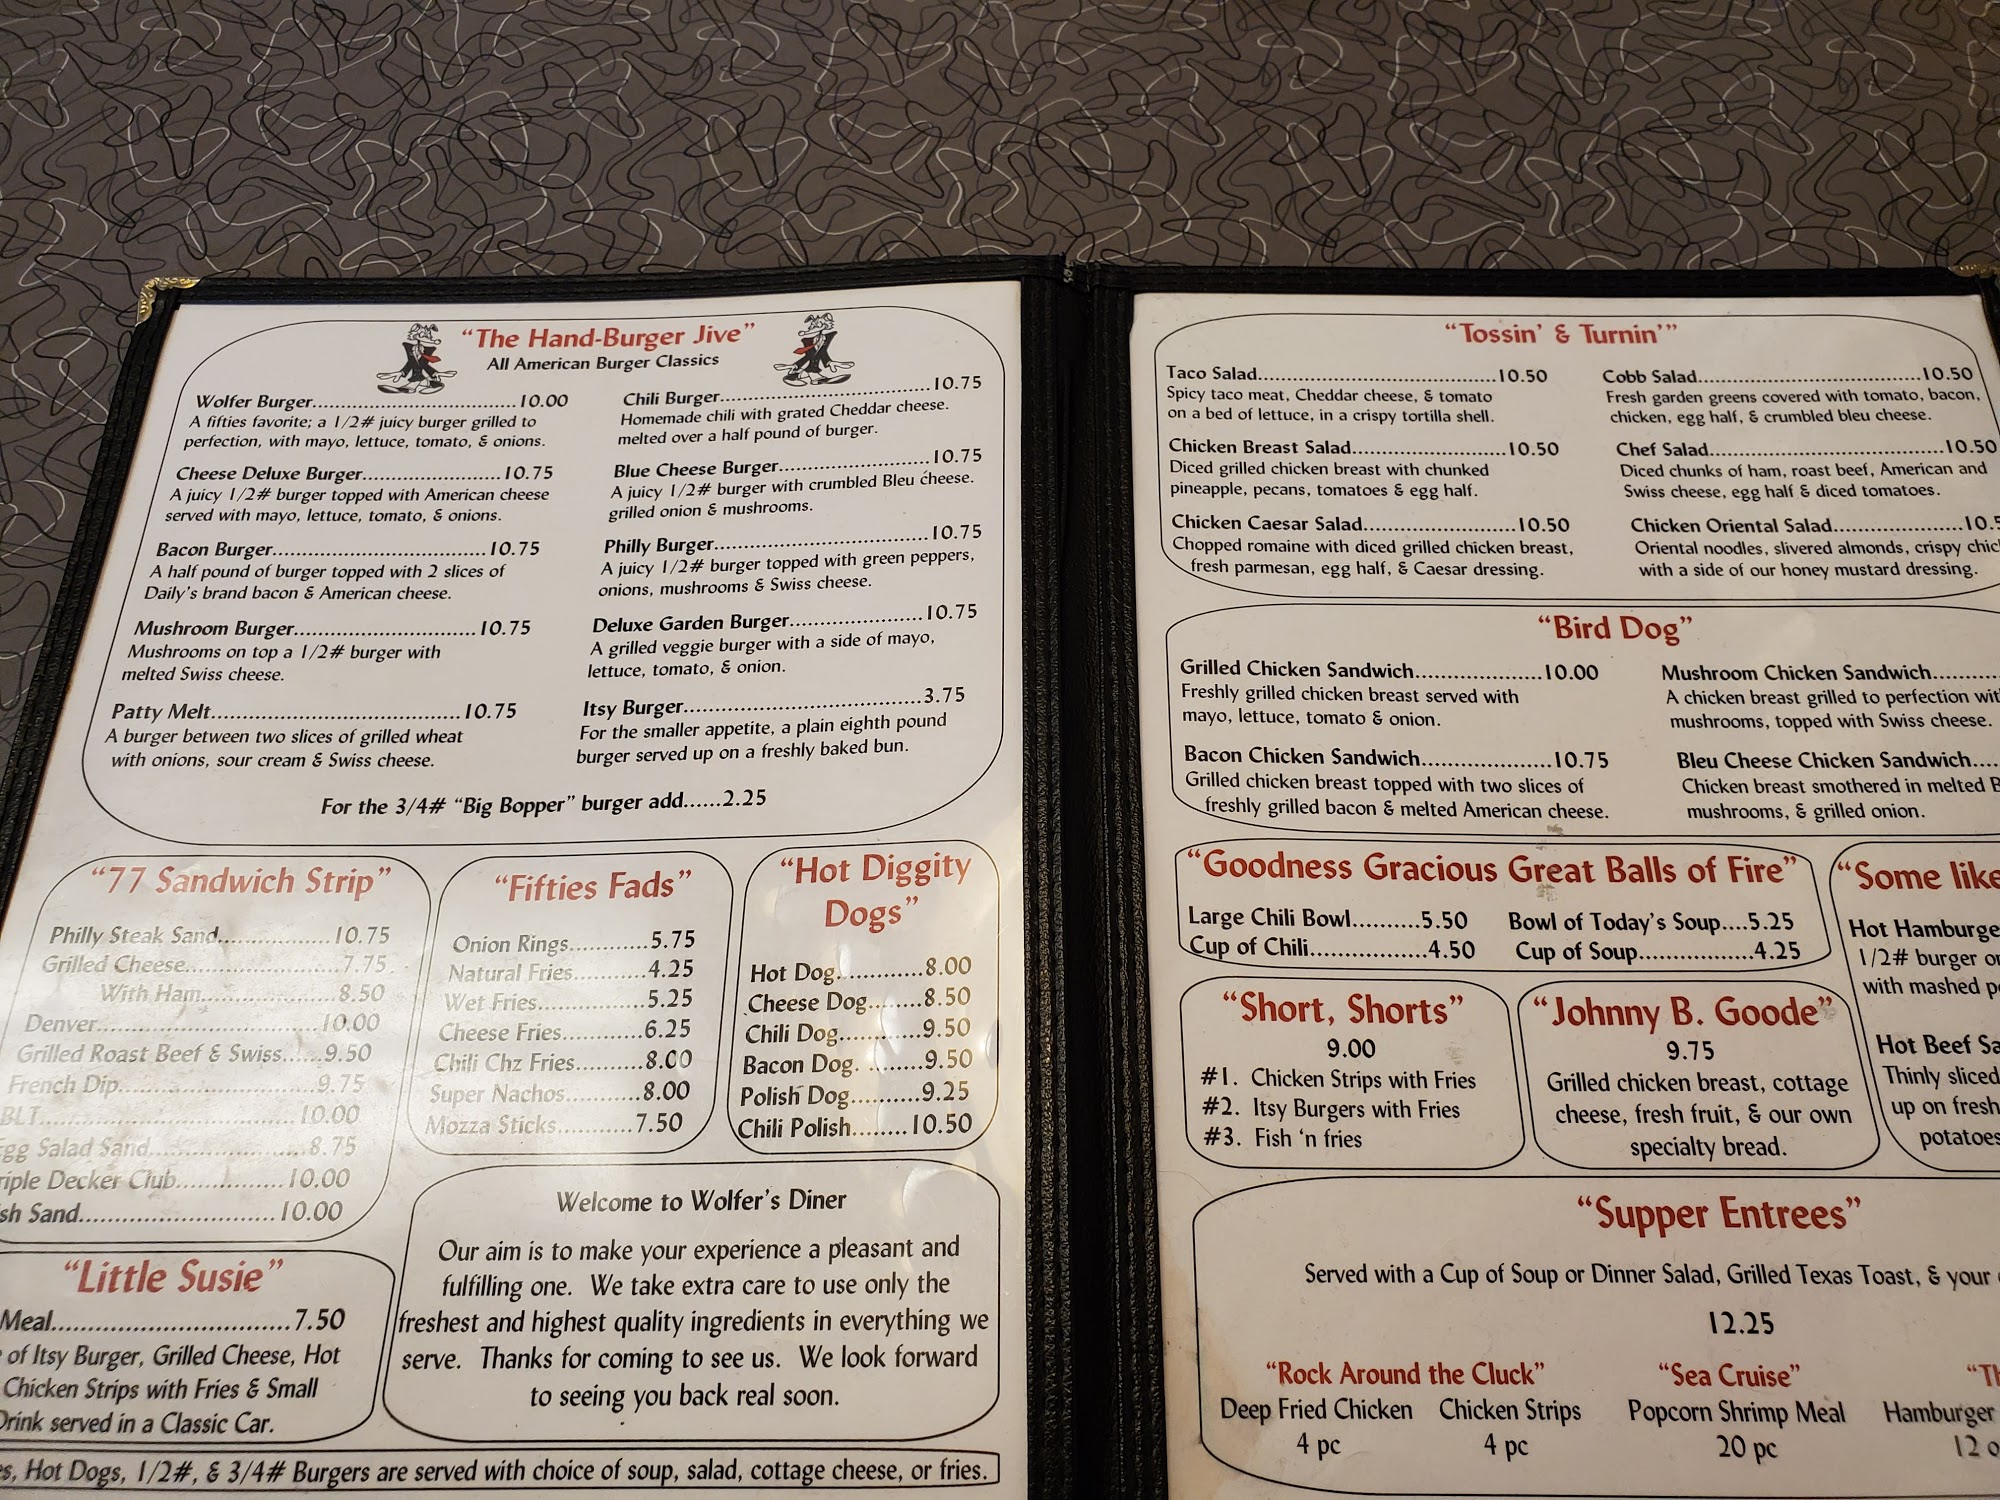 “The Hand-Burger Jive”
All American Burger Classics
Wolfer Burger..............................10.00
A fifties favorite; a 1/2# juicy burger grilled to
perfection, with mayo, lettuce, tomato, & onions.
Cheese Deluxe Burger....................10.75
A juicy 1/2# burger topped with American cheese
served with mayo, lettuce, tomato, & onions.
Bacon Burger..............................10.75
A half pound of burger topped with 2 slices of
Daily's brand bacon & American cheese.
Mushroom Burger.........................10.75
Mushrooms on top a 1/2# burger with
melted Swiss cheese.
Patty Melt..................................10.75
A burger between two slices of grilled wheat
with onions, sour cream & Swiss cheese.
Chili Burger..............................10.75
Homemade chili with grated Cheddar cheese.
melted over a half pound of burger.
Blue Cheese Burger.....................10.75
A juicy 1/2# burger with crumbled Bleu cheese.
grilled onion & mushrooms.
Philly Burger..............................10.75
A juicy 1/2# burger topped with green peppers,
onions, mushrooms & Swiss cheese.
Deluxe Garden Burger...................10.75
A grilled veggie burger with a side of mayo,
lettuce, tomato, & onion.
Itsy Burger.................................3.75
For the smaller appetite, a plain eighth pound
burger served up on a freshly baked bun.
For the 3/4# “Big Bopper” burger add......2.25
“77 Sandwich Strip”
Philly Steak Sand.................10.75
Grilled Cheese.....................7.75
With Ham...................8.50
Denver.............................10.00
Grilled Roast Beef & Swiss......9.50
French Dip.........................9.75
BLT.................................10.00
Egg Salad Sand....................8.75
riple Decker Club...............10.00
sh Sand...........................10.00
“Fifties Fads”
Onion Rings............5.75
Natural Fries...........4.25
Wet Fries................5.25
Cheese Fries............6.25
Chili Chz Fries..........8.00
Super Nachos...........8.00
Mozza Sticks...........7.50
“Hot Diggity
Dogs”
Hot Dog............8.00
Cheese Dog........8.50
Chili Dog...........9.50
Bacon Dog. ........9.50
Polish Dog..........9.25
Chili Polish........10.50
“Little Susie”
Meal................................7.50
of Itsy Burger, Grilled Cheese, Hot
Chicken Strips with Fries & Small
Drink served in a Classic Car.
Welcome to Wolfer's Diner
Our aim is to make your experience a pleasant and
fulfilling one. We take extra care to use only the
freshest and highest quality ingredients in everything we
serve. Thanks for coming to see us. We look forward
to seeing you back real soon.
s, Hot Dogs, 1/2#, & 3/4# Burgers are served with choice of soup, salad, cottage cheese, or fries.
“Tossin' & Turnin'”
Taco Salad....................................10.50
Spicy taco meat, Cheddar cheese, & tomato
on a bed of lettuce, in a crispy tortilla shell.
Chicken Breast Salad........................10.50
Diced grilled chicken breast with chunked
pineapple, pecans, tomatoes & egg half.
Chicken Caesar Salad.......................10.50
Chopped romaine with diced grilled chicken breast,
fresh parmesan, egg half, & Caesar dressing.
Cobb Salad..................................10.50
Fresh garden greens covered with tomato, bacon,
chicken, egg half, & crumbled bleu cheese.
Chef Salad...................................10.50
Diced chunks of ham, roast beef, American and
Swiss cheese, egg half & diced tomatoes.
Chicken Oriental Salad...................10.5
Oriental noodles, slivered almonds, crispy chic
with a side of our honey mustard dressing.
“Bird Dog”
Grilled Chicken Sandwich...................10.00
Freshly grilled chicken breast served with
mayo, lettuce, tomato & onion.
Bacon Chicken Sandwich....................10.75
Grilled chicken breast topped with two slices of
freshly grilled bacon & melted American cheese.
Mushroom Chicken Sandwich..........
A chicken breast grilled to perfection wit
mushrooms, topped with Swiss cheese.
Bleu Cheese Chicken Sandwich....
Chicken breast smothered in melted B
mushrooms, & grilled onion.
“Goodness Gracious Great Balls of Fire”
Large Chili Bowl..........5.50
Cup of Chili.................4.50
Bowl of Today's Soup....5.25
Cup of Soup................4.25
“Short, Shorts”
9.00
#1. Chicken Strips with Fries
#2. Itsy Burgers with Fries
#3. Fish 'n fries
“Johnny B. Goode”
9.75
Grilled chicken breast, cottage
cheese, fresh fruit, & our own
specialty bread.
“Some like
Hot Hamburge
1/2# burger o
with mashed p
Hot Beef Sa
Thinly sliced
up on fresh
potatoes
“Supper Entrees”
Served with a Cup of Soup or Dinner Salad, Grilled Texas Toast, & your
12.25
“Rock Around the Cluck”
Deep Fried Chicken Chicken Strips
4 pc 4 pc
“Sea Cruise”
Popcorn Shrimp Meal
20 pc
“Th
Hamburger
12 o